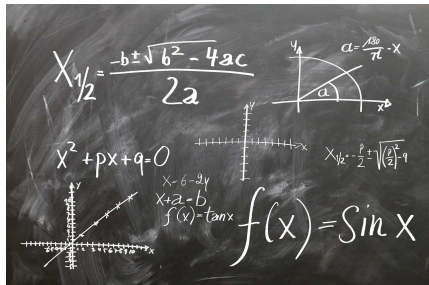 X1/2 = -b±√b²-4ac / 2a
y
a = 180/π · x
a
x
y
x
x²+px+q=0
X1/2 = -p/2 ± √(p/2)²-q
x=6-2y
x+a=b
f(x)=tanx
y
x
f(x)=Sin x